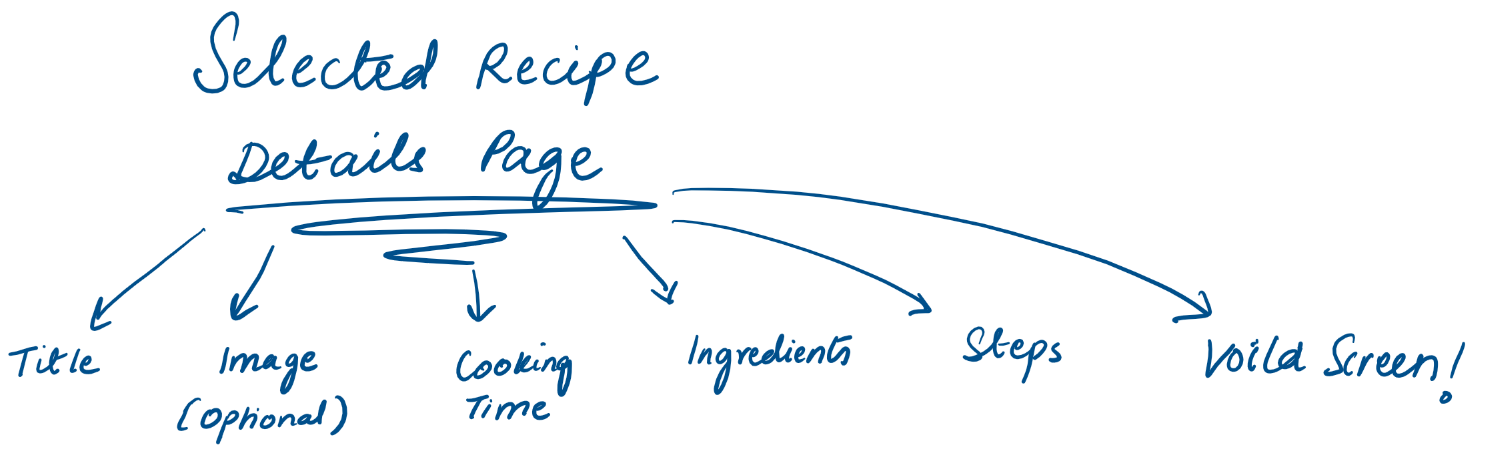 Selected Recipe
Details Page
Title
Image
(Optional)
Cooking
Time
Ingredients
Steps
Voila Screen!